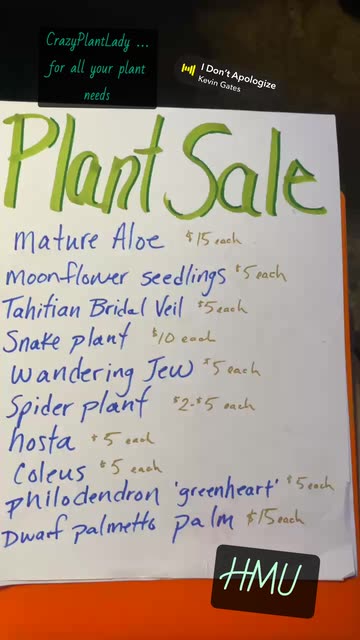 CrazyPlantLady ...
for all your plant
needs
I Don't Apologize
Kevin Gates
Plant Sale
Mature Aloe $15 each
Moonflower seedlings $5 each
Tahitian Bridal Veil $5 each
Snake plant $10 each
Wandering Jew $5 each
Spider plant $2-$5 each
hosta $5 each
Coleus $5 each
philodendron 'greenheart' $5 each
Dwarf palmetto palm $15 each
HMU